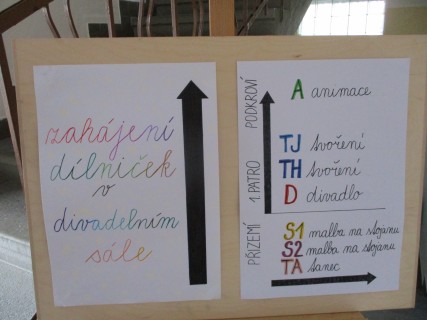 zahájení
dílniček
v
divadelním
sále
PODKROVÍ
A animace
1. PATRO
TJ tvoření
TH tvoření
D divadlo
PŘÍZEMÍ
S1 malba na stojanu
S2 malba na stojanu
TA tanec